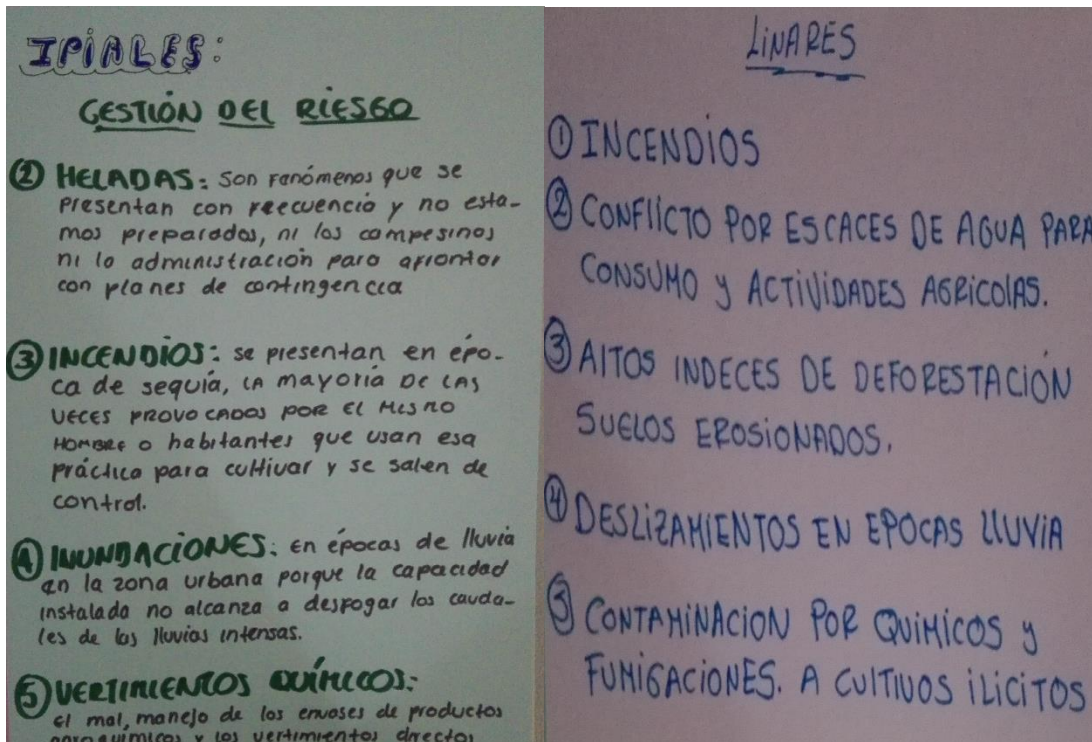 IPIALES:
GESTIÓN DEL RIESGO
② HELADAS: Son fenómenos que se
presentan con frecuencia y no esta-
mos preparados, ni los campesinos
ni la administración para afrontar
con planes de contingencia
③ INCENDIOS: se presentan en épo-
ca de sequía, LA mayoría DE LAS
VECES PROVOCADOS POR EL MISMO
HOMBRE o habitantes que usan esa
práctica para cultivar y se salen de
control.
④ INUNDACIONES: En épocas de lluvia
en la zona urbana porque la capacidad
instalada no alcanza a desfogar los cauda-
les de las lluvias intensas.
⑤ VERTIMIENTOS QUÍMICOS:
el mal, manejo de los envases de productos
agroquímicos y los vertimientos directos
LINARES
① INCENDIOS
② CONFLICTO POR ESCACES DE AGUA PARA
CONSUMO y ACTIVIDADES AGRICOLAS.
③ ALTOS INDECES DE DEFORESTACIÓN
SUELOS EROSIONADOS.
④ DESLIZAMIENTOS EN EPOCAS LLUVIA
⑤ CONTAMINACION POR QUIMICOS y
FUMIGACIONES. A CULTIVOS ILICITOS